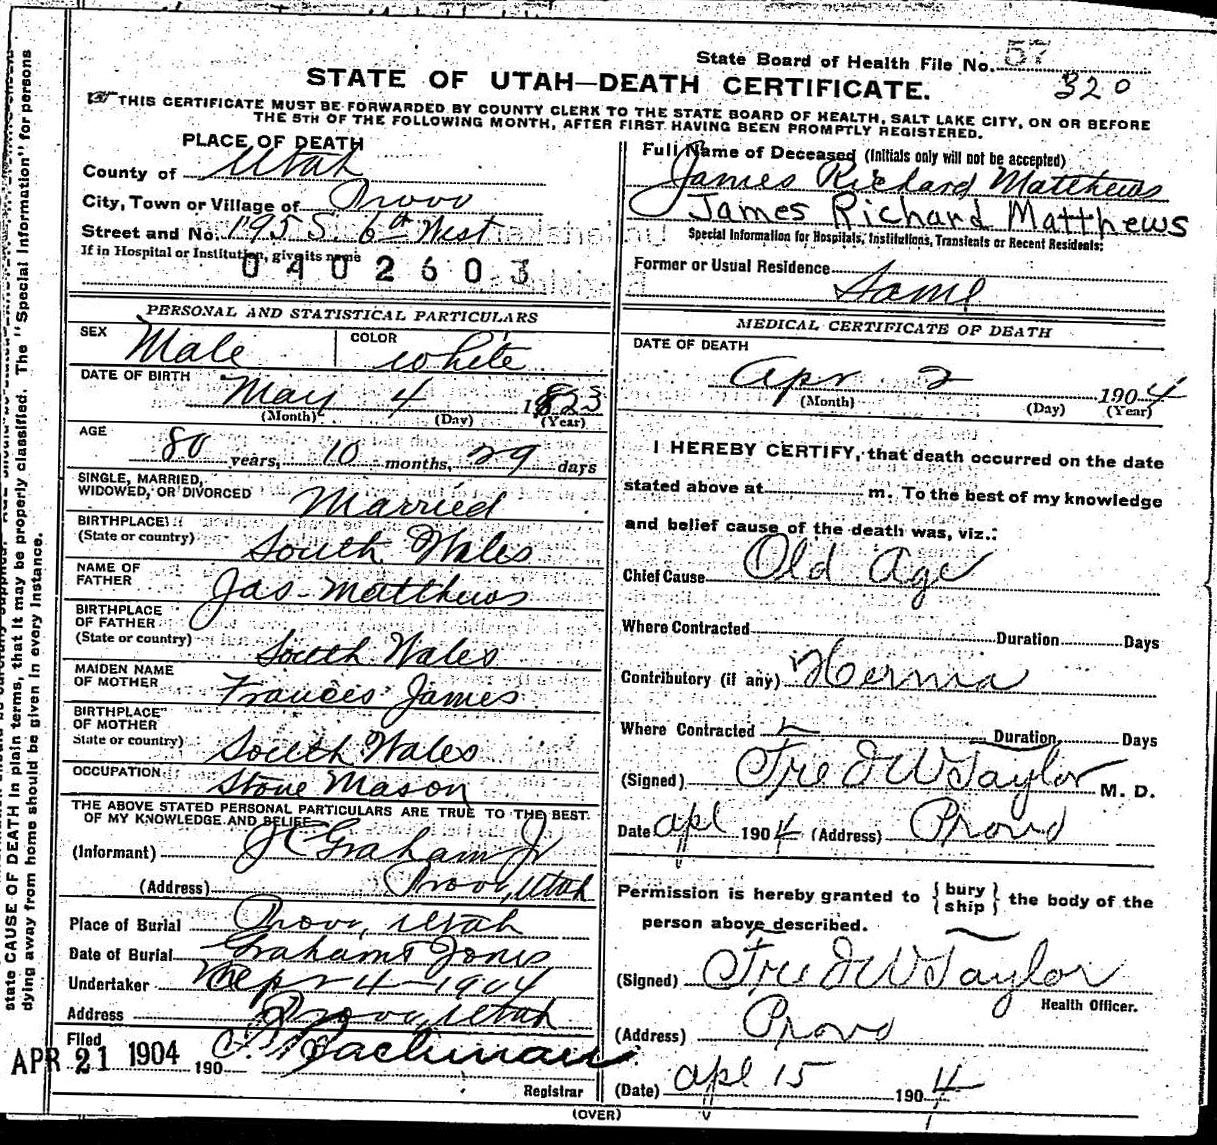 State Board of Health File No. 57
320
STATE OF UTAH—DEATH CERTIFICATE.
THIS CERTIFICATE MUST BE FORWARDED BY COUNTY CLERK TO THE STATE BOARD OF HEALTH, SALT LAKE CITY, ON OR BEFORE
THE 5TH OF THE FOLLOWING MONTH, AFTER FIRST HAVING BEEN PROMPTLY REGISTERED.
PLACE OF DEATH
County of Utah
City, Town or Village of Provo
Street and No. 195 S. 6th West
If in Hospital or Institution, give its name
0402603
Full Name of Deceased (Initials only will not be accepted)
James Richard Matthews
James Richard Matthews
Special Information for Hospitals, Institutions, Transients or Recent Residents:
Former or Usual Residence
Same
PERSONAL AND STATISTICAL PARTICULARS
SEX Male COLOR White
DATE OF BIRTH May 4 1823
(Month) (Day) (Year)
AGE 80 years, 10 months, 29 days
SINGLE, MARRIED,
WIDOWED, OR DIVORCED Married
BIRTHPLACE
(State or country) South Wales
NAME OF
FATHER Jas Matthews
BIRTHPLACE
OF FATHER
(State or country) South Wales
MAIDEN NAME
OF MOTHER Frances James
BIRTHPLACE
OF MOTHER
State or country) South Wales
OCCUPATION Stone Mason
THE ABOVE STATED PERSONAL PARTICULARS ARE TRUE TO THE BEST
OF MY KNOWLEDGE AND BELIEF
(Informant) J C Graham Jr
(Address) Provo, Utah
Place of Burial Provo, Utah
Date of Burial Grahams Jones
Undertaker Apr 4 - 1904
Address Provo, Utah
Filed
APR 21 1904 190
Registrar
MEDICAL CERTIFICATE OF DEATH
DATE OF DEATH
Apr 2 1904
(Month) (Day) (Year)
I HEREBY CERTIFY, that death occurred on the date
stated above at m. To the best of my knowledge
and belief cause of the death was, viz.:
Chief Cause Old Age
Where Contracted Duration Days
Contributory (if any) Hernia
Where Contracted Duration Days
(Signed) Fred W Taylor M. D.
Date Apl 1904 (Address) Provo
Permission is hereby granted to { bury ship } the body of the
person above described.
(Signed) Fred W Taylor
Health Officer.
(Address) Provo
(Date) Apl 15 1904
(OVER)
state CAUSE OF DEATH in plain terms, that it may be properly classified. The "Special Information" for persons
dying away from home should be given in every instance.